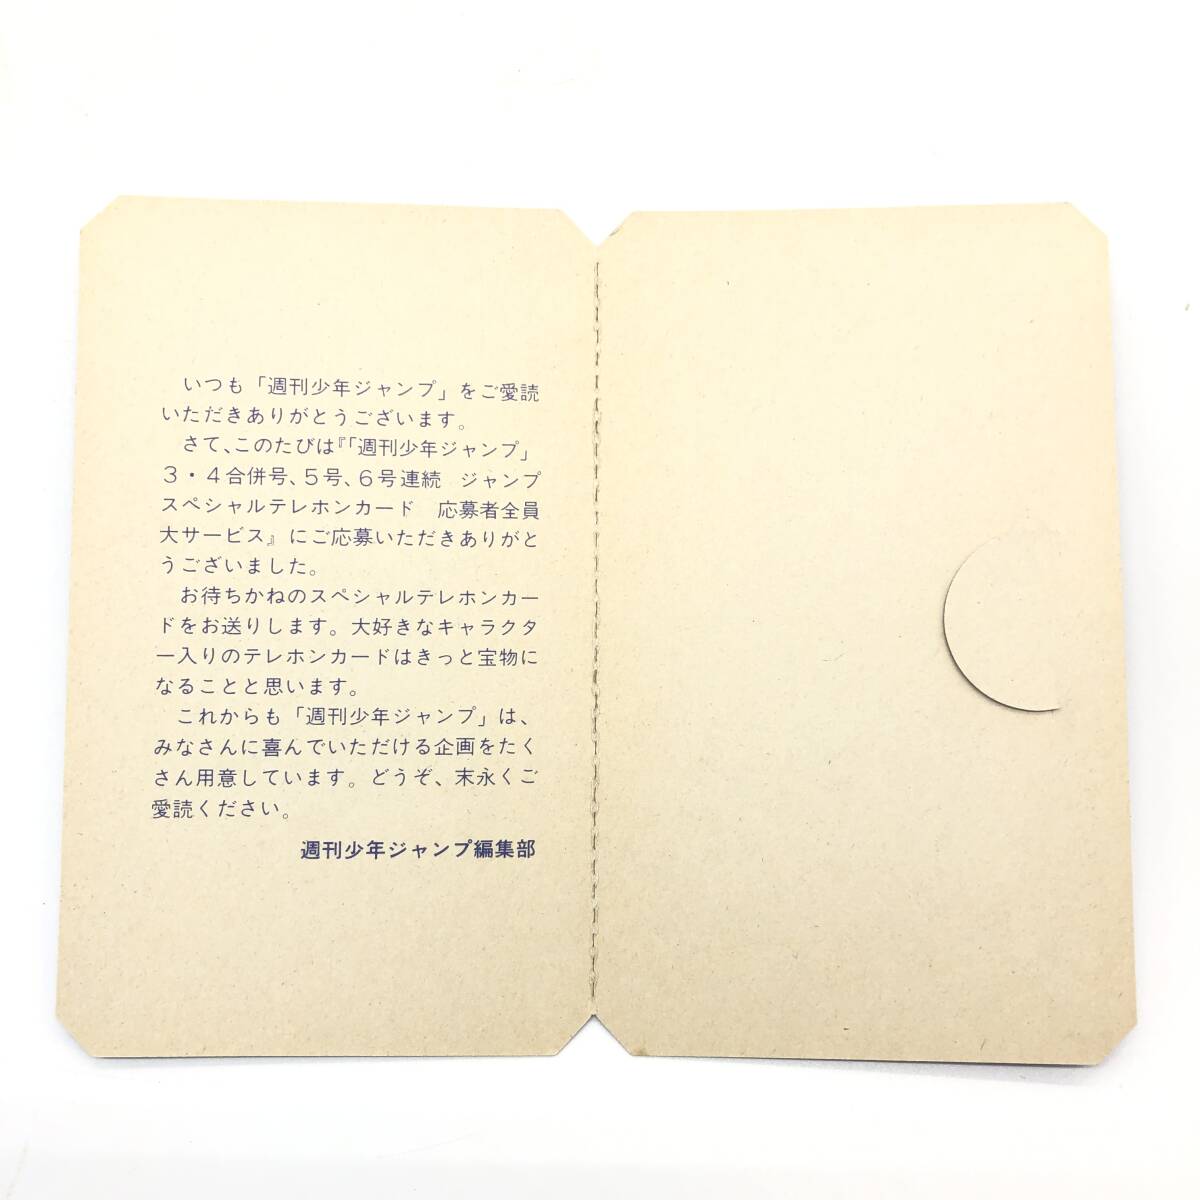 いつも「週刊少年ジャンプ」をご愛読
いただきありがとうございます。
さて、このたびは『「週刊少年ジャンプ」
3・4合併号、5号、6号連続 ジャンプ
スペシャルテレホンカード 応募者全員
大サービス』にご応募いただきありがと
うございました。
お待ちかねのスペシャルテレホンカー
ドをお送りします。大好きなキャラクタ
ー入りのテレホンカードはきっと宝物に
なることと思います。
これからも「週刊少年ジャンプ」は、
みなさんに喜んでいただける企画をたく
さん用意しています。どうぞ、末永くご
愛読ください。
週刊少年ジャンプ編集部